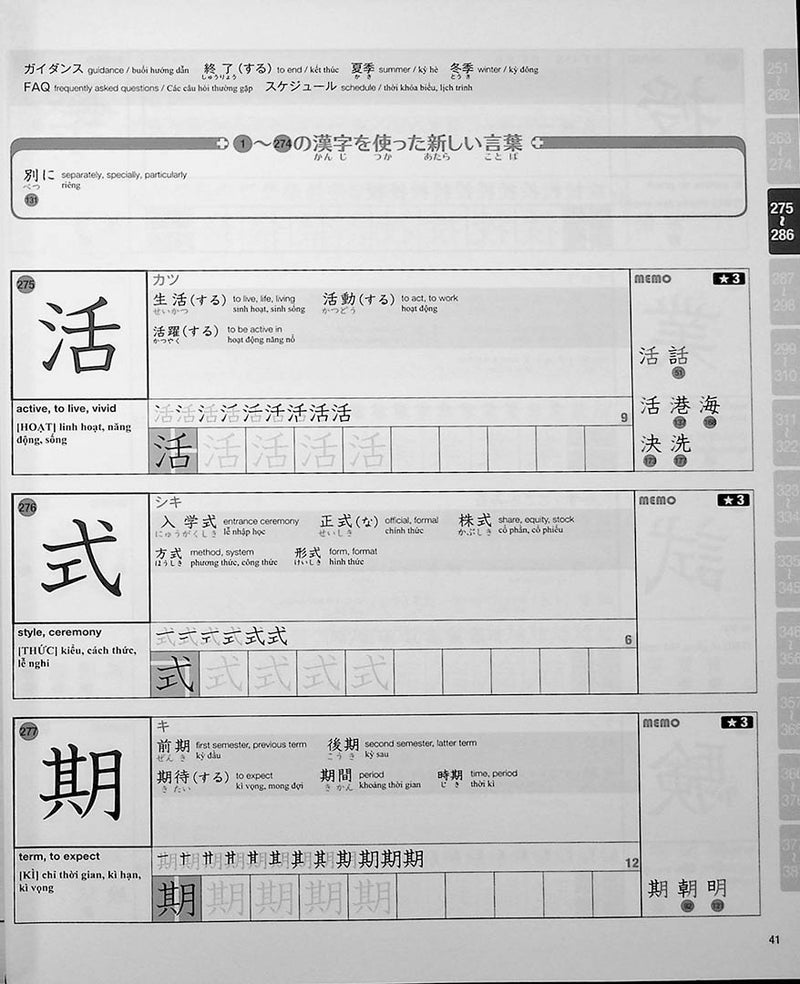 ガイダンス guidance / buổi hướng dẫn 終了(する) to end / kết thúc 夏季 summer / kỳ hè 冬季 winter / kỳ đông
しゅうりょう かき とうき
FAQ frequently asked questions / Các câu hỏi thường gặp スケジュール schedule / thời khóa biểu, lịch trình
1〜274の漢字を使った新しい言葉
かんじ つか あたら ことば
別に separately, specially, particularly
べつ riêng
131
251〜262
263〜274
275〜286
275
活
カツ
生活(する) to live, life, living 活動(する) to act, to work
せいかつ sinh hoạt, sinh sống かつどう hoạt động
活躍(する) to be active in
かつやく hoạt động năng nổ
MEMO ★3
活 話
51
活 港 海
137
決 洗
173 177
active, to live, vivid
[HOẠT] linh hoạt, năng động, sống
活活活活活活活活活 9
活 活 活 活 活
276
式
シキ
入学式 entrance ceremony 正式(な) official, formal 株式 share, equity, stock
にゅうがくしき lễ nhập học せいしき chính thức かぶしき cổ phần, cổ phiếu
方式 method, system 形式 form, format
ほうしき phương thức, công thức けいしき hình thức
MEMO ★3
style, ceremony
[THỨC] kiểu, cách thức, lễ nghi
式式式式式式 6
式 式 式 式 式
277
期
キ
前期 first semester, previous term 後期 second semester, latter term
ぜんき kỳ đầu こうき kỳ sau
期待(する) to expect 期間 period 時期 time, period
きたい kì vọng, mong đợi きかん khoảng thời gian じき thời kì
MEMO ★3
期 朝 明
92 121
term, to expect
[KÌ] chỉ thời gian, kì hạn, kì vọng
期期期期期期期期期期期期 12
期 期 期 期 期
41